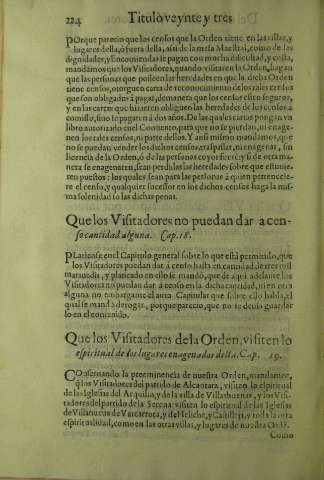 224 Titulo veynte y tres
PORque parecio que los censos que la Orden tiene en las villas, y
lugares della, ò fuera della, asi de la mesa Maestral, como de las
dignidades, y Encomiendas se pagan con mucha dificultad, y costa,
mandamos que los Visitadores, quando visitaren la Orden, hagan
que las personas que posseen las heredades en que la dicha Orden
tiene censos, otorguen carta de reconocimiento de los tales censos
que son obligados à pagar, de manera que los censos esten seguros,
y en las cartas que hizieren obliguen las heredades de los censos a
comisso, sino lo pagaren à dos años. De las quales cartas pongan vn
libro autorizado en el Conuento, para que no se puedan, ni enage-
nen los tales censos, ni parte dellos. Y assi mismo mandamos, que
no se puedan vender los dichos censos, traspassar, ni enagenar, sin
licencia de la Orden, ò de las personas cuyo fuere: y si de otra ma-
nera se enagenaren, sean perdidas las heredades sobre que estuuie-
ren puestos: los quales sean para las personas à quien pertenecie-
re el censo, y qualquier sucessor en los dichos censos haga la mis-
ma solenidad so las dichas penas.
Que los Visitadores no puedan dar a cen-
so cantidad alguna. Cap. 18.
PLaticose en el Capitulo general sobre lo que està permitido, que
los Visitadores puedan dar à censo hasta en cantidad de tres mil
marauedis, y platicado en ello se mandò, que de aqui adelante los
Visitadores no puedan dar à censo en la dicha cantidad, ni en otra
alguna no embargante el auto Capitular que sobre ello habla, el
qual se mandò derogar, porque parecio, que no se deuio guardar
lo en el contenido.
Que los Visitadores de la Orden, visiten lo
espiritual de los lugares enagenados della. Cap. 19.
COnseruando la preeminencia de nuestra Orden, mandamos,
q̃ los Visitadores del partido de Alcantara, visiten lo espiritual
de las Iglesias del Arquillo, y de la villa de Villasbuenas, y los Visi-
tadores del partido de la Serena visiten lo espiritual de las Iglesias
de Villanueua de Varcarrota, y de Heliche, y Castilleja, y toda la otra
espiritualidad, como en las otras villas, y lugares de nuestra Ordẽ.
Como